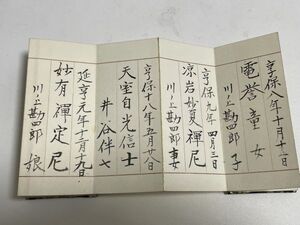 享保八年十月十二日
電誉童女
川ノ上勘四郎子
享保九年四月三日
凉岩妙夏禅尼
川ノ上勘四郎妻
享保十八年五月廿八日
天室自光信士
井ノ谷伴七
延享元年十二月十九日
妙有禅定尼
川ノ上勘四郎娘